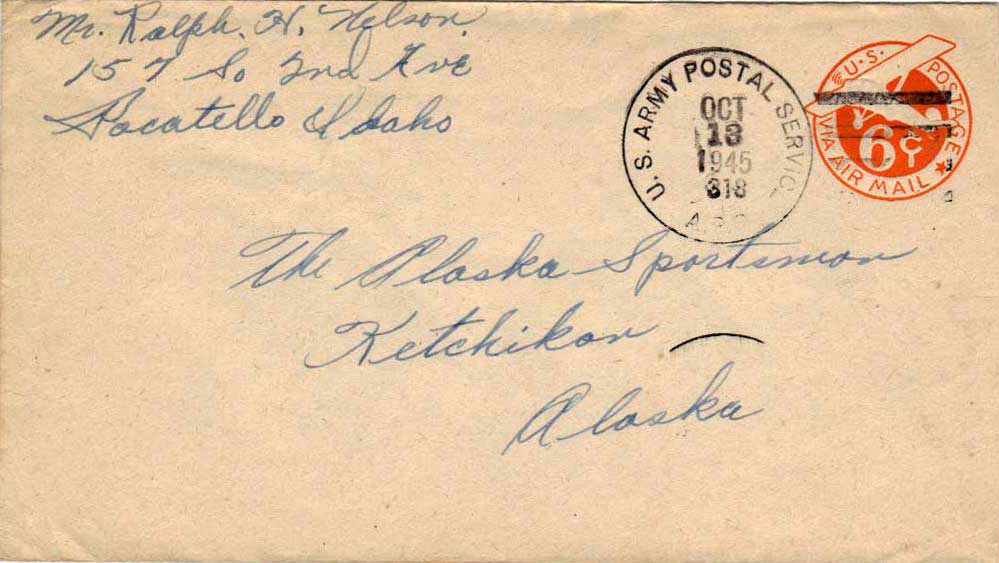 Mr. Ralph. H. Nelson.
157 So 2nd Ave
Pocatello Idaho
U. S. ARMY POSTAL SERVIC
OCT
13
1945
318
U.S. POSTAGE
6¢
VIA AIR MAIL
The Alaska Sportsman
Ketchikan
Alaska